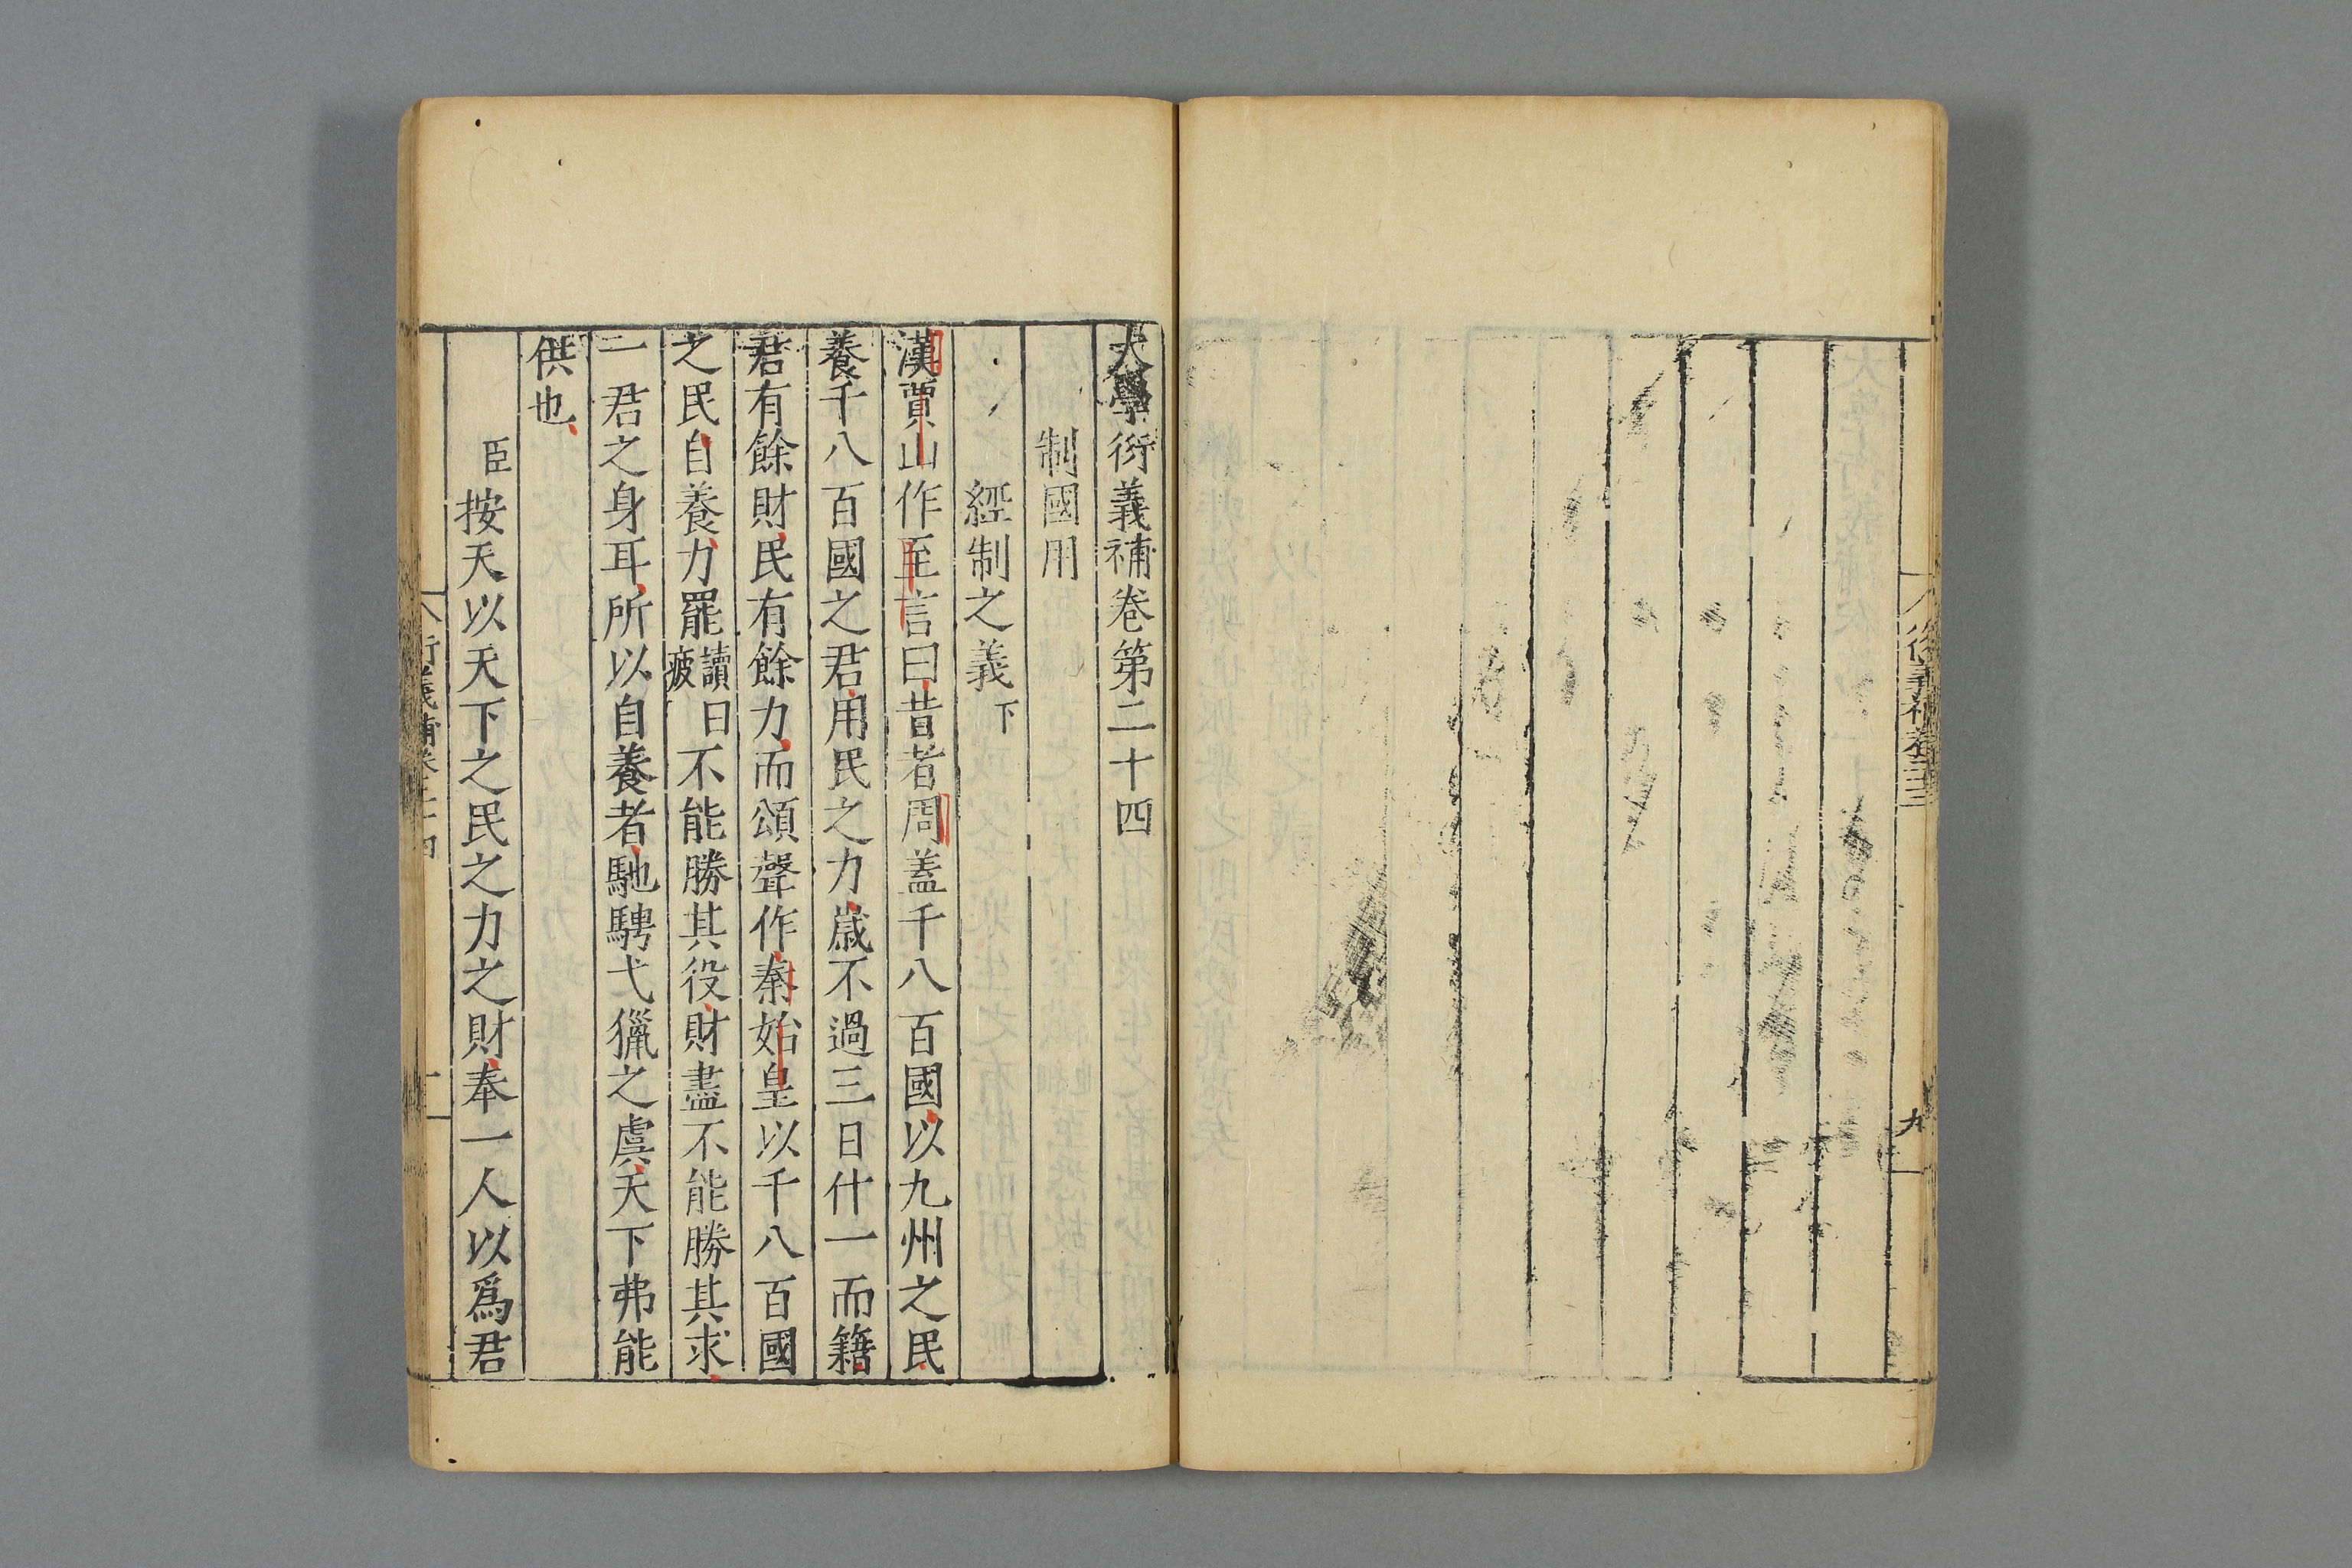 大學衍義補卷第二十四
制國用
經制之義下
漢賈山作至言曰昔者周蓋千八百國以九州之民
養千八百國之君用民之力歲不過三日什一而籍
君有餘財民有餘力而頌聲作秦始皇以千八百國
之民自養力罷讀曰疲不能勝其役財盡不能勝其求
一君之身耳所以自養者馳騁弋獵之虞天下弗能
供也
臣按天以天下之民之力之財奉一人以爲君
衍義補卷二十四
一
九